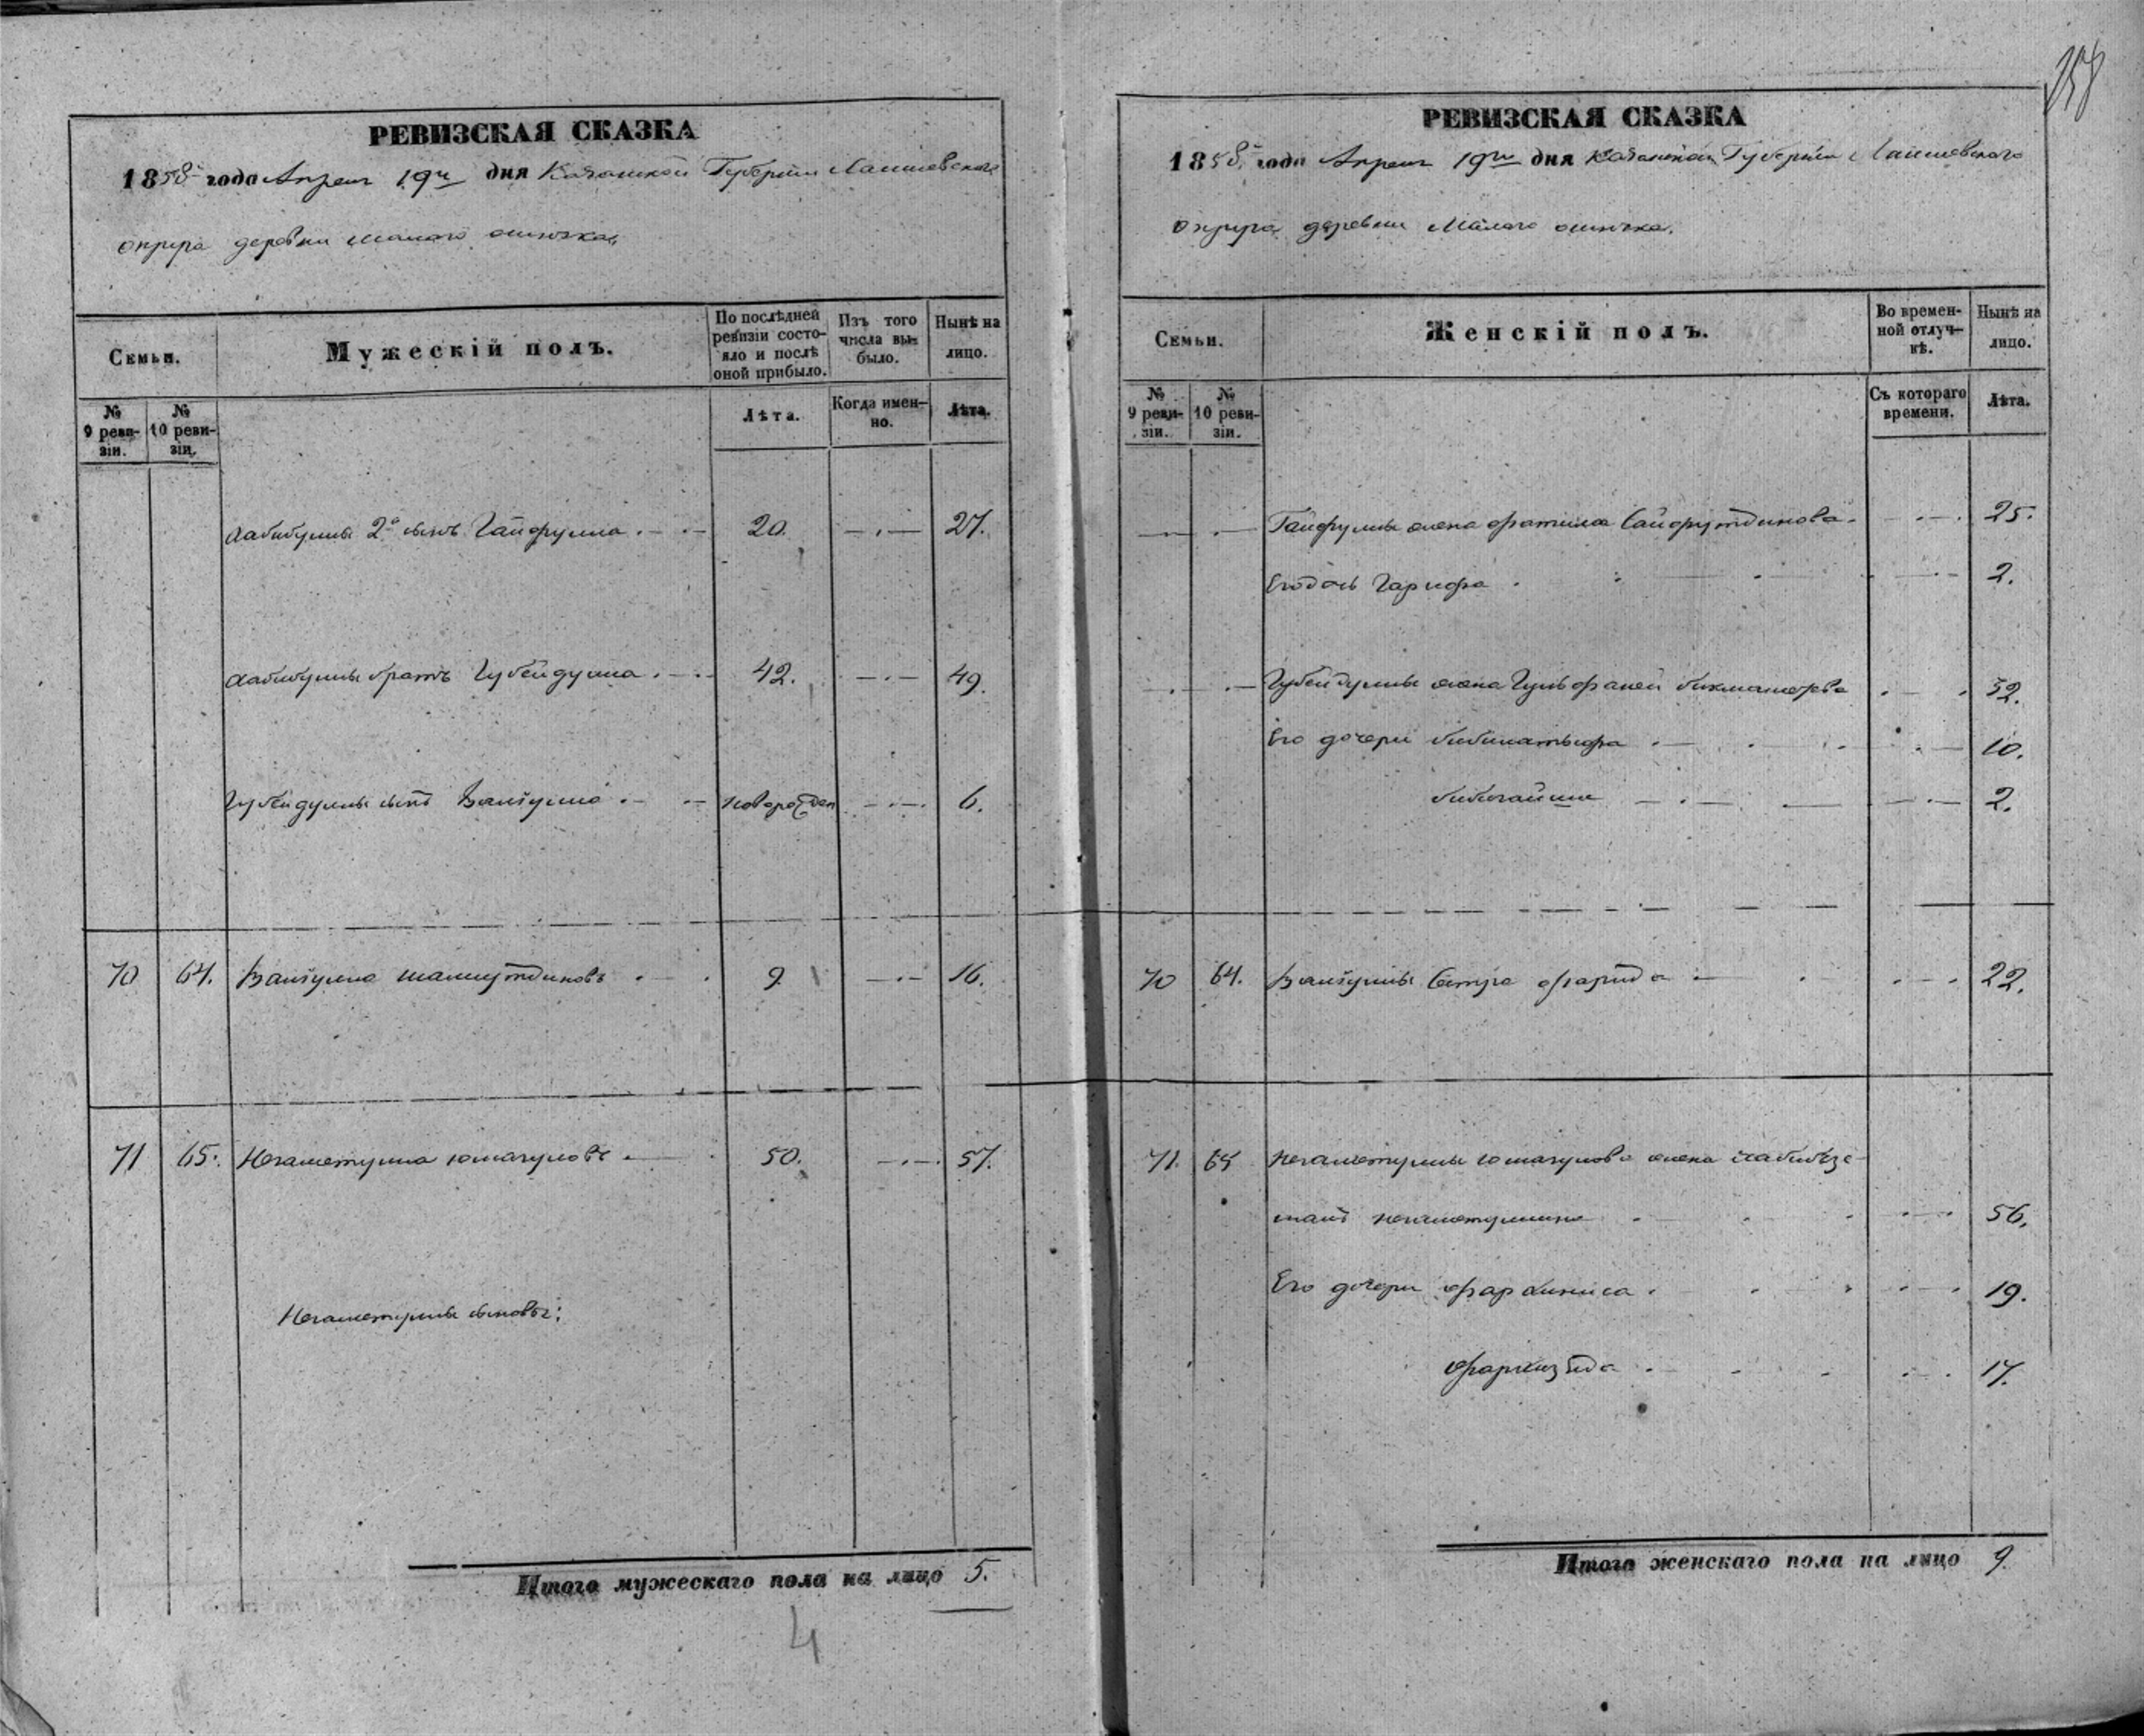 158
РЕВИЗСКАЯ СКАЗКА
1858 года Апреля 19го дня Казанской Губернии Лаишевского
округа деревни Малаго
Семьи.
Мужескій полъ.
По послѣдней ревизіи состояло и послѣ оной прибыло.
Изъ того числа выбыло.
Нынѣ на лицо.
№ 9 ревизіи.
№ 10 ревизіи.
Лѣта.
Когда именно.
Лѣта.
Хабибуллы 2й сынъ Гайфулла 20. 27.
Хабибуллы братъ Губейдулла 42. 49.
Губейдуллы сынъ Валіулла новорожден 6.
70 64. Валіулла Шамсутдиновъ 9 16.
71 65. Негаметулла Юмагуловъ 50. 57.
Негаметуллы сыновья:
Итого мужескаго пола на лицо 5.
4
РЕВИЗСКАЯ СКАЗКА
1858 года Апреля 19го дня Казанской Губерніи Лаишевского
округа деревни Малаго
Семьи.
Женскій полъ.
Во временной отлучкѣ.
Нынѣ на лицо.
№ 9 ревизіи.
№ 10 ревизіи.
Съ котораго времени.
Лѣта.
Гайфуллы жена Фатима Сайфутдинова 25.
Его дочь Гарифа 2.
Губейдуллы жена 32.
Его дочери Бибилатыфа 10.
Бибигайша 2.
70 64. Валіуллы сестра Фарида 22.
71. 65 Негаметуллы Юмагулова жена Хабибзе-
56.
Его дочери Фархиниса 19.
17.
Итого женскаго пола на лицо 9.